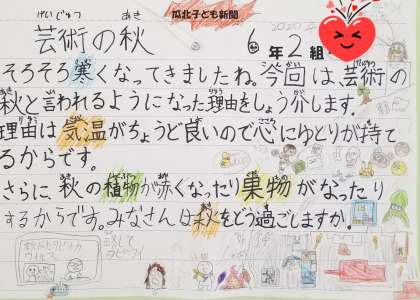 瓜北子ども新聞
げいじゅつ あき
芸術の秋
6年2組
そろそろ寒くなってきましたね。今回は、芸術の
秋と言われるようになった理由をしょう介します。
理由は気温がちょうど良いので心にゆとりが持て
るからです。
さらに、秋の植物が赤くなったり果物がなったり
するからです。みなさんは秋をどう過ごしますか。